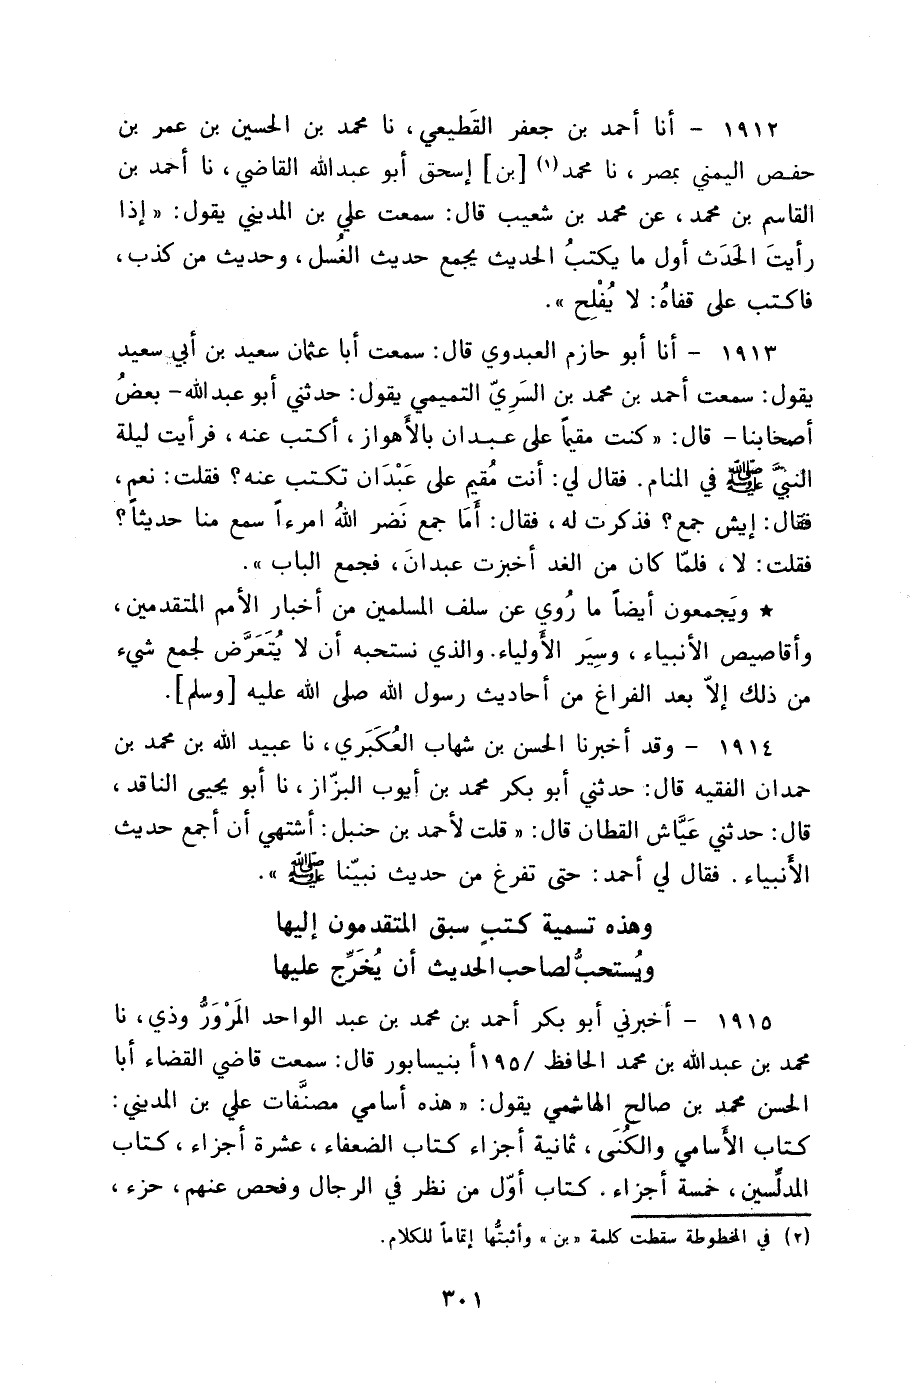 ١٩١٢ - أنا أحمد بن جعفر القَطيعي، نا محمد بن الحسين بن عمر بن
حفص اليمني بمصر، نا محمد(١) [بن] إسحق أبو عبدالله القاضي، نا أحمد بن
القاسم بن محمد، عن محمد بن شعيب قال: سمعت علي بن المديني يقول: « إذا
رأيتَ الحَدَث أول ما يكتبُ الحديث يجمع حديث الغُسل، وحديث من كذب،
فاكتب على قفاهُ: لا يُفْلِح ».
١٩١٣ - أنا أبو حازم العبدوي قال: سمعت أبا عثمان سعيد بن أبي سعيد
يقول: سمعت أحمد بن محمد بن السَرِيّ التميمي يقول: حدثني أبو عبدالله - بعضُ
أصحابنا - قال: « كنت مقيماً على عبدان بالأهواز، أكتب عنه، فرأيت ليلة
النبيَّ ﷺ في المنام. فقال لي: أنت مُقيم على عَبْدَان تكتب عنه؟ فقلت: نعم،
فقال: إيش جمع؟ فذكرت له، فقال: أَمَا جمع نَضر اللهُ امرءاً سمع منا حديثاً؟
فقلت: لا، فلمّا كان من الغد أخبرت عبدانَ، فجمع الباب ».
★ ويَجمعون أيضاً ما رُوي عن سلف المسلمين من أخبار الأمم المتقدمين،
وأقاصيص الأنبياء، وسِيَر الأولياء. والذي نستحبه أن لا يُتَعَرَّض لجمع شيء
من ذلك إلاّ بعد الفراغ من أحاديث رسول الله صلى الله عليه [وسلم].
١٩١٤ - وقد أخبرنا الحسن بن شهاب العُكبَري، نا عبيد الله بن محمد بن
حمدان الفقيه قال: حدثني أبو بكر محمد بن أيوب البزّاز، نا أبو يحيى الناقد،
قال: حدثني عَيَّاش القطان قال: « قلت لأحمد بن حنبل: أشتهي أن أجمع حديث
الأنبياء. فقال لي أحمد: حتى تفرغ من حديث نبيّنا ﷺ ».
وهذه تسمية كتبٍ سبق المتقدمون إليها
ويُستحبُّ لصاحب الحديث أن يُخَرِّج عليها
١٩١٥ - أخبرني أبو بكر أحمد بن محمد بن عبد الواحد المَرْوَرُّوذي، نا
محمد بن عبدالله بن محمد الحافظ /١٩٥أ بنيسابور قال: سمعت قاضي القضاء أبا
الحسن محمد بن صالح الهاشمي يقول: « هذه أسامي مصنَّفات علي بن المديني:
كتاب الأسامي والكُنَى، ثمانية أجزاء كتاب الضعفاء، عشرة أجزاء، كتاب
المدلِّسين، خمسة أجزاء. كتاب أوّل من نظر في الرجال وفحص عنهم، حزء،
(٢) في المخطوطة سقطت كلمة « بن » وأثبتُّها إتماماً للكلام.
٣٠١